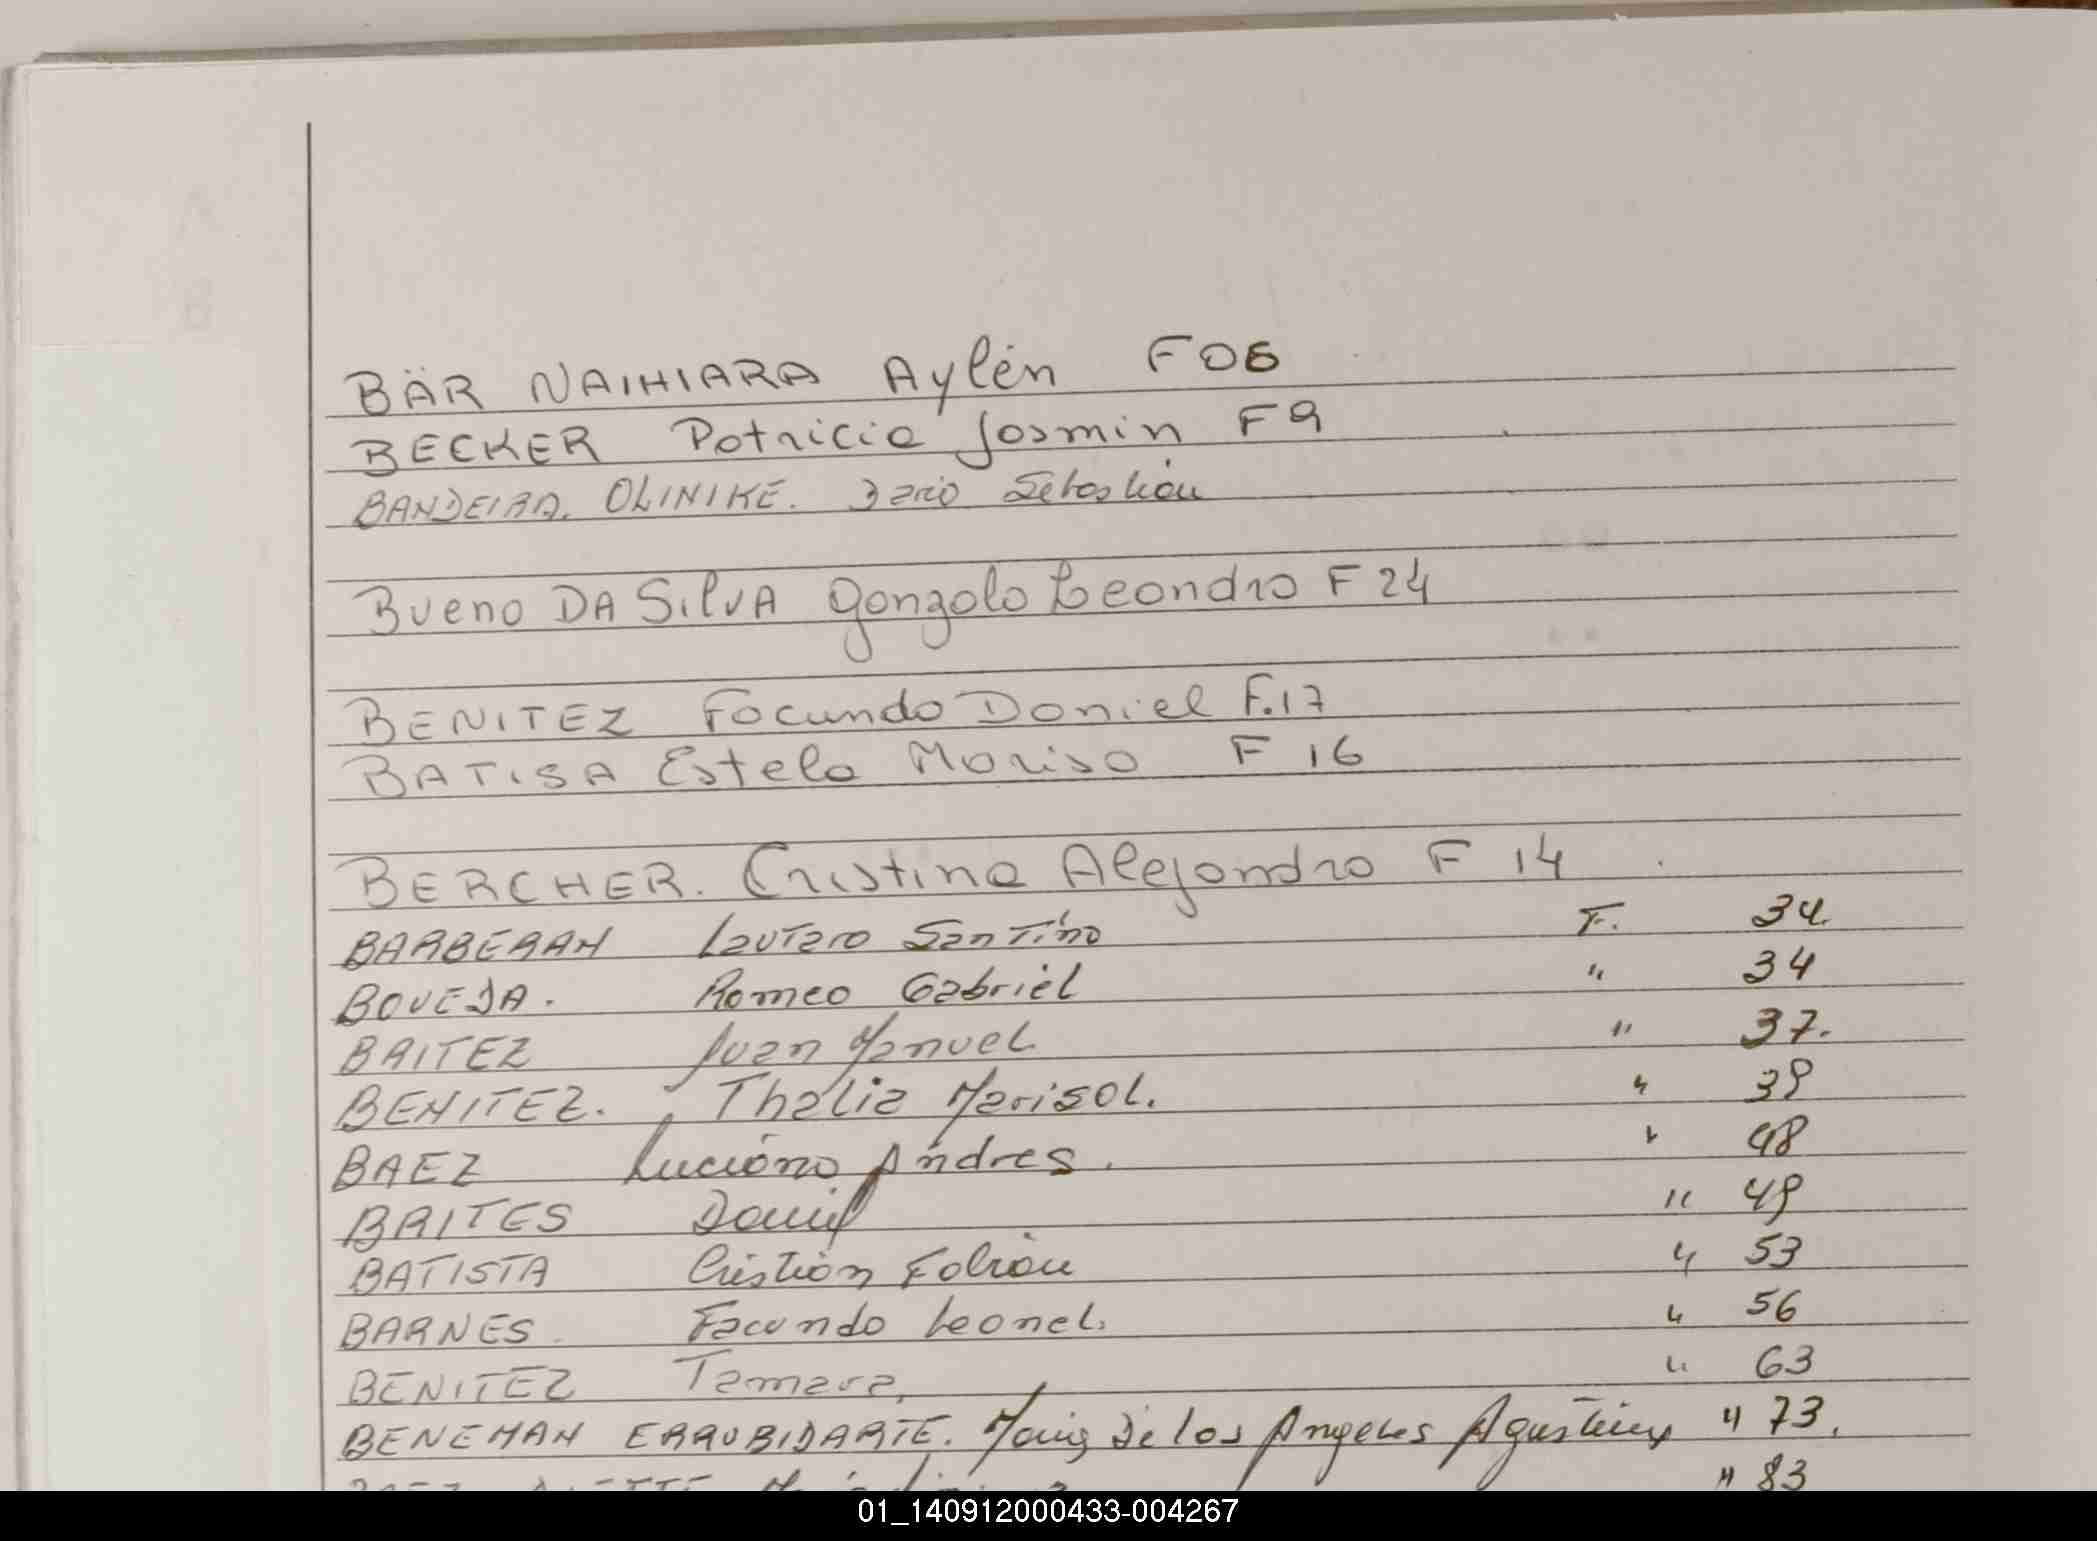 BÄR NAIHIARA Aylén F06
BECKER Patricia Jasmin F9
BANDEIRA. OLINIKE. Dario Sebastián
Bueno DA SilVA Gonzalo Leandro F 24
BENITEZ Facundo Daniel F.17
BATISA Estela Marisa F 16
BERCHER. Cristina Alejandra F 14
BARBERAN Lautaro Santino F. 34.
BOVEDA. Romeo Gabriel " 34
BAITEZ Juan Manuel. " 37.
BENITEZ. Thalia Marisol. " 39
BAEZ Luciano Andres. " 48
BRITES " 49
BATISTA Cristián Fabián " 53
BARNES. Facundo Leonel. " 56
BENITEZ Tamara, " 63
BENEMAN ERRUBIDARTE. María De los Angeles Agustina " 73.
" 83
01_140912000433-004267